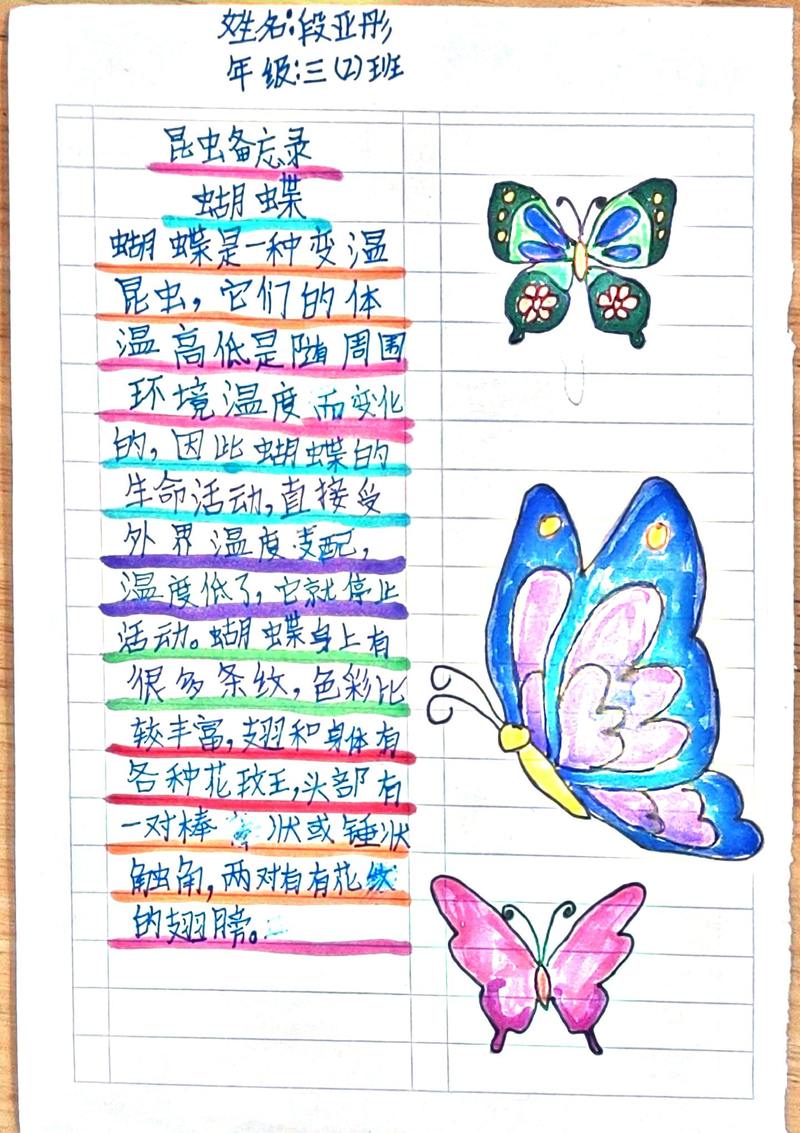 姓名:段亚彤
年级:三(2)班
昆虫备忘录
蝴蝶
蝴蝶是一种变温
昆虫，它们的体
温高低是随周围
环境温度而变化
的，因此蝴蝶的
生命活动，直接受
外界温度支配，
温度低了，它就停止
活动。蝴蝶身上有
很多条纹，色彩比
较丰富，翅和身体有
各种花斑，头部有
一对棒状或锤状
触角，两对有有花纹
的翅膀。